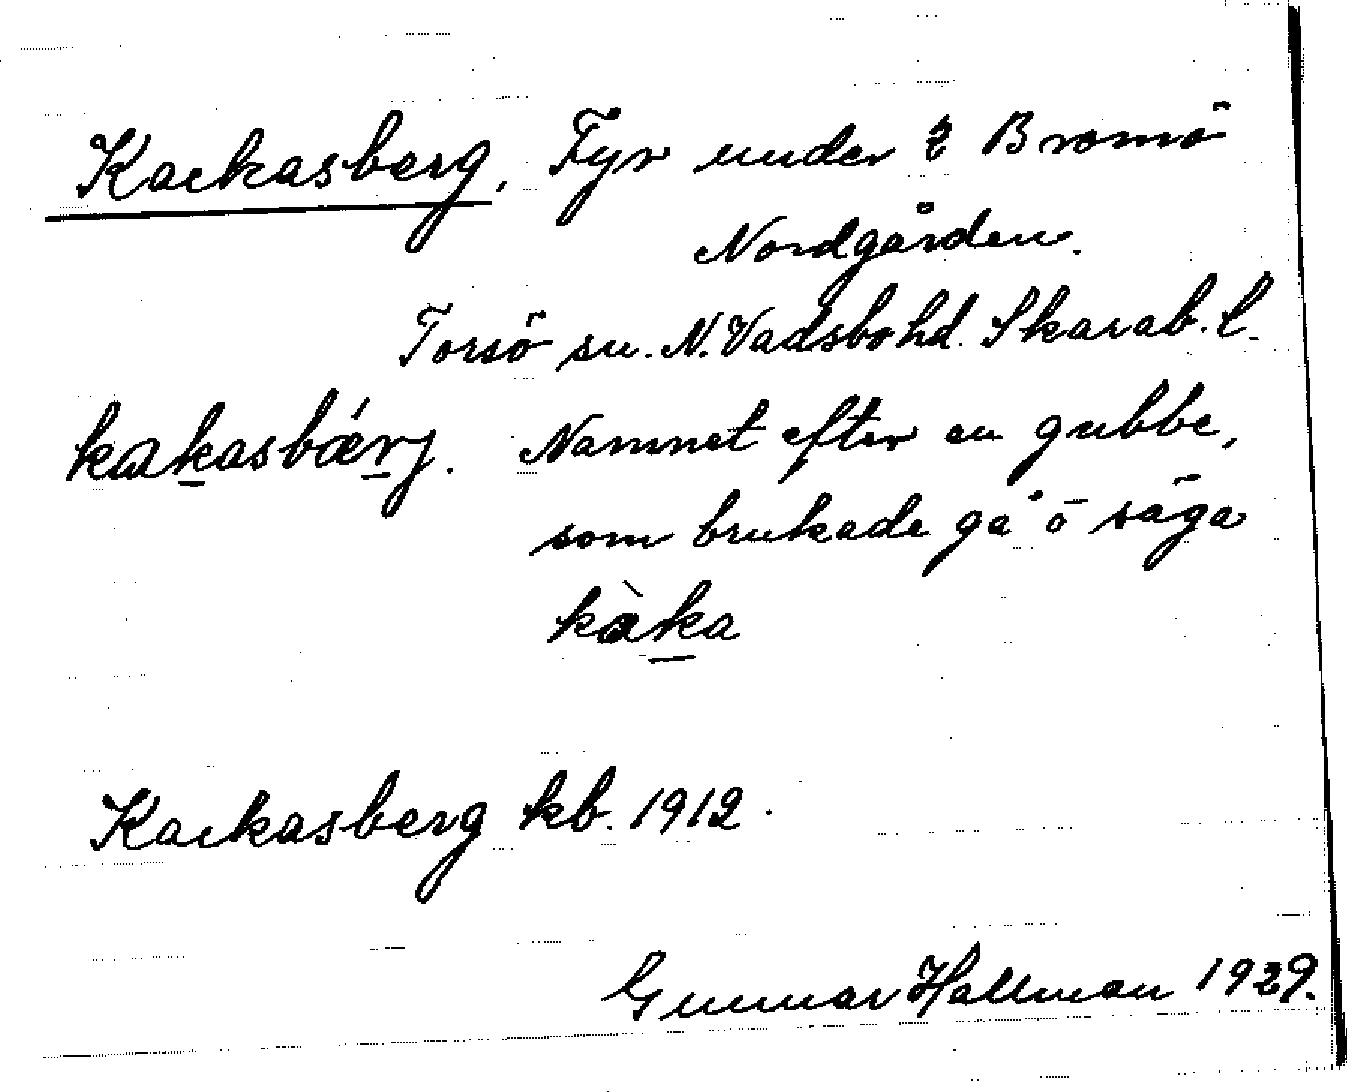 Kackasberg. Fyr under 2 Bromö
Nordgården.
Torsö sn. N. Vadsbo hd. Skarab. l.
kakasbǽrj. Namnet efter en gubbe,
som brukade gå o säga
kàka
Kackasberg kb. 1912.
Gunnar Hallman 1929.